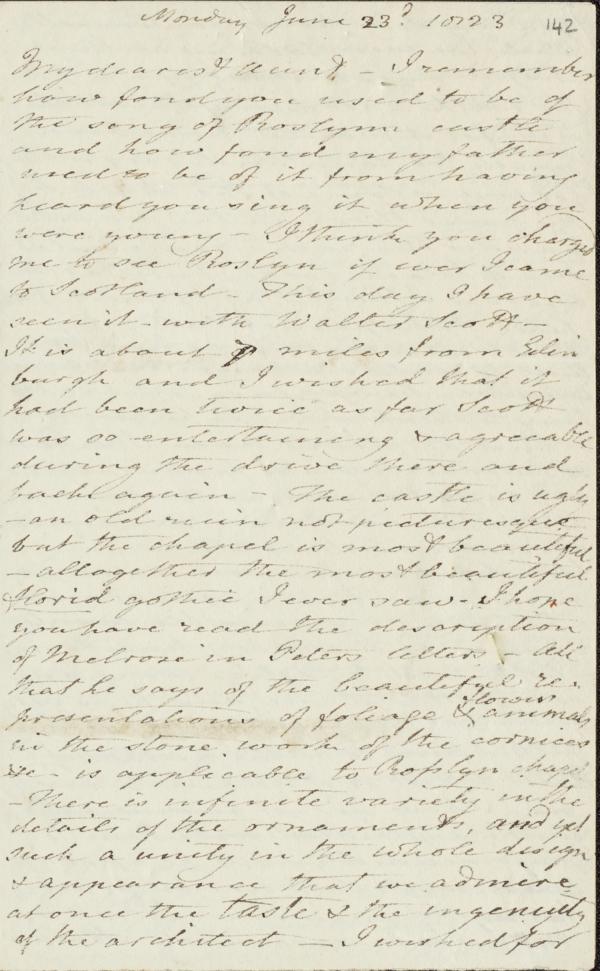 Monday June 23d. 1823 142
My dearest Aunt - I remember
how fond you used to be of
the song of Roslynn castle
and how fond my father
used to be of it from having
heard you sing it when you
were young - I think you charged
me to see Roslyn if ever I came
to Scotland - This day I have
seen it - with Walter Scott -
It is about 7 miles from Edin
burgh and I wished that it
had been twice as far Scott
was so entertaining & agreeable
during the drive there and
back again - The castle is ugly
- an old ruin not picturesque
but the chapel is most beautiful
- altogether the most beautiful
florid gothic I ever saw - I hope
you have read the description
of Melrose in Peters letters - All
that he says of the beautiful re-
presentations of foliage flowers & animals
in the stone work of the cornices
&c - is applicable to Rosslyn chapel
- There is infinite variety in the
details of the ornaments, and yet
such a unity in the whole design
& appearance that we admire
at once the taste & the ingenuity
of the architect - I wished for